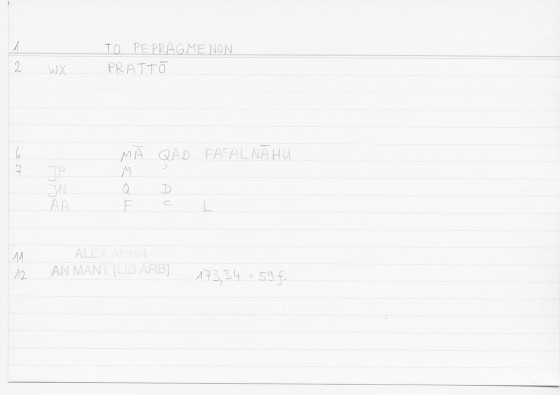 1 TO PEPRAGMENON
2 WX PRATTŌ
6 MĀ QAD FAʿALNĀHU
7 JP M ʾ
JN Q D
AA F ʿ L
11 ALEX APHR
12 AN MANT [LIB ARB] 173,34 = 59 f.